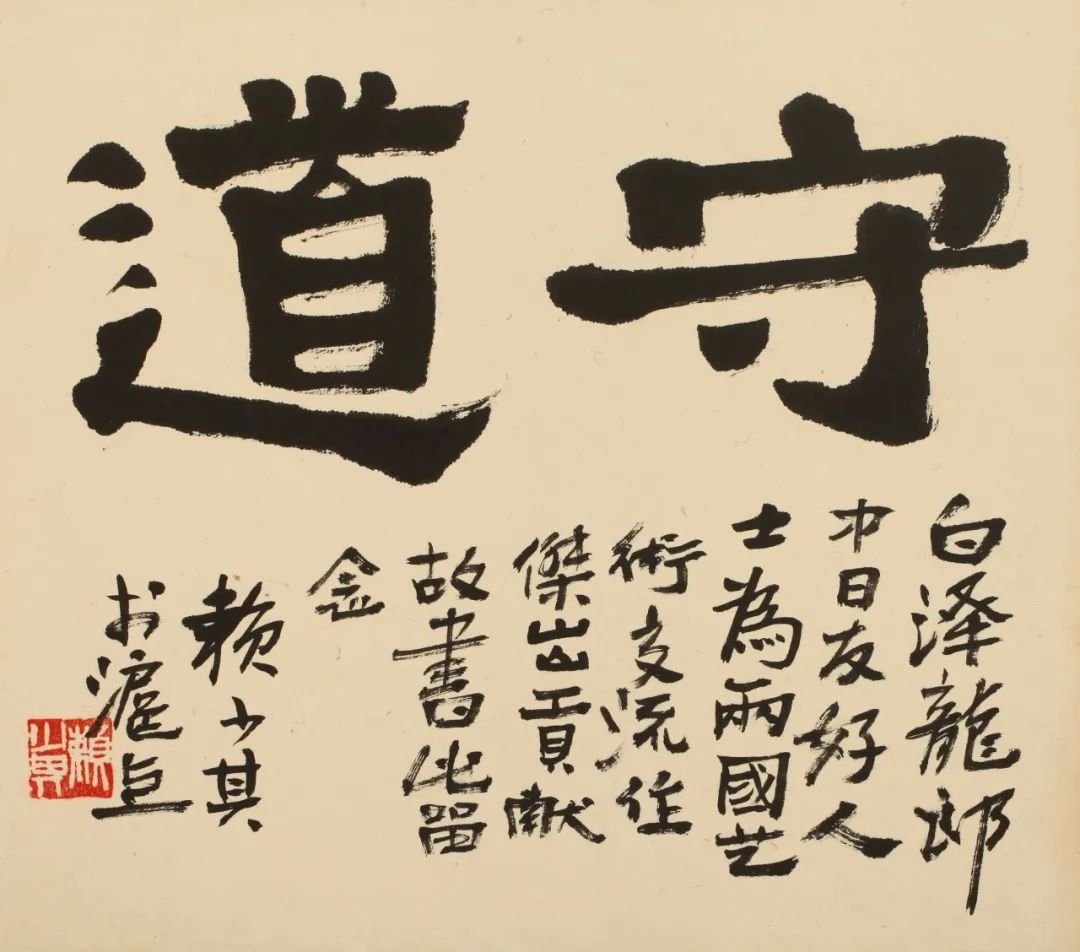 守道
白泽龍郎
中日友好人
士為兩國艺
術交流作
傑出貢献
故書此留
念
赖少其
滬
賴少其